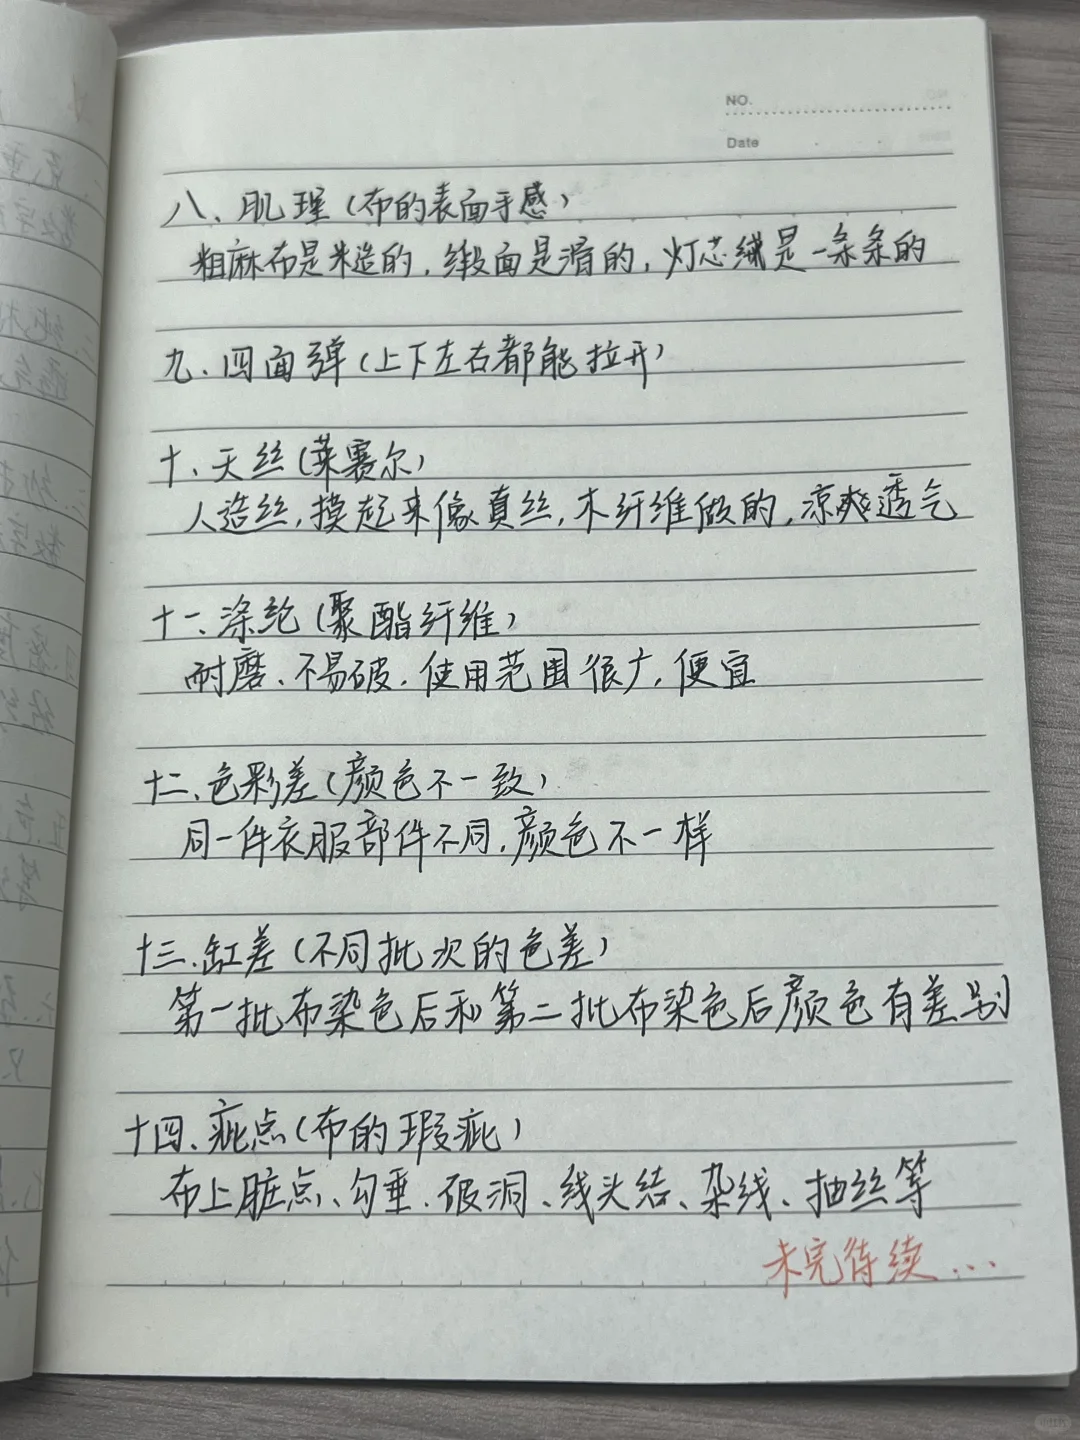 NO.
Date
八、肌理（布的表面手感）
粗麻布是米造的，缎面是滑的，灯芯绒是一条条的
九、四面弹（上下左右都能拉开）
十、天丝（莱赛尔）
人造丝，摸起来像真丝，木纤维做的，凉爽透气
十一、涤纶（聚酯纤维）
耐磨、不易破、使用范围很广，便宜
十二、色彩差（颜色不一致）
同一件衣服部件不同，颜色不一样
十三、缸差（不同批次的色差）
第一批布染色后和第二批布染色后颜色有差别
十四、疵点（布的瑕疵）
布上脏点、勾垂、破洞、线头结、杂线、抽丝等
未完待续...